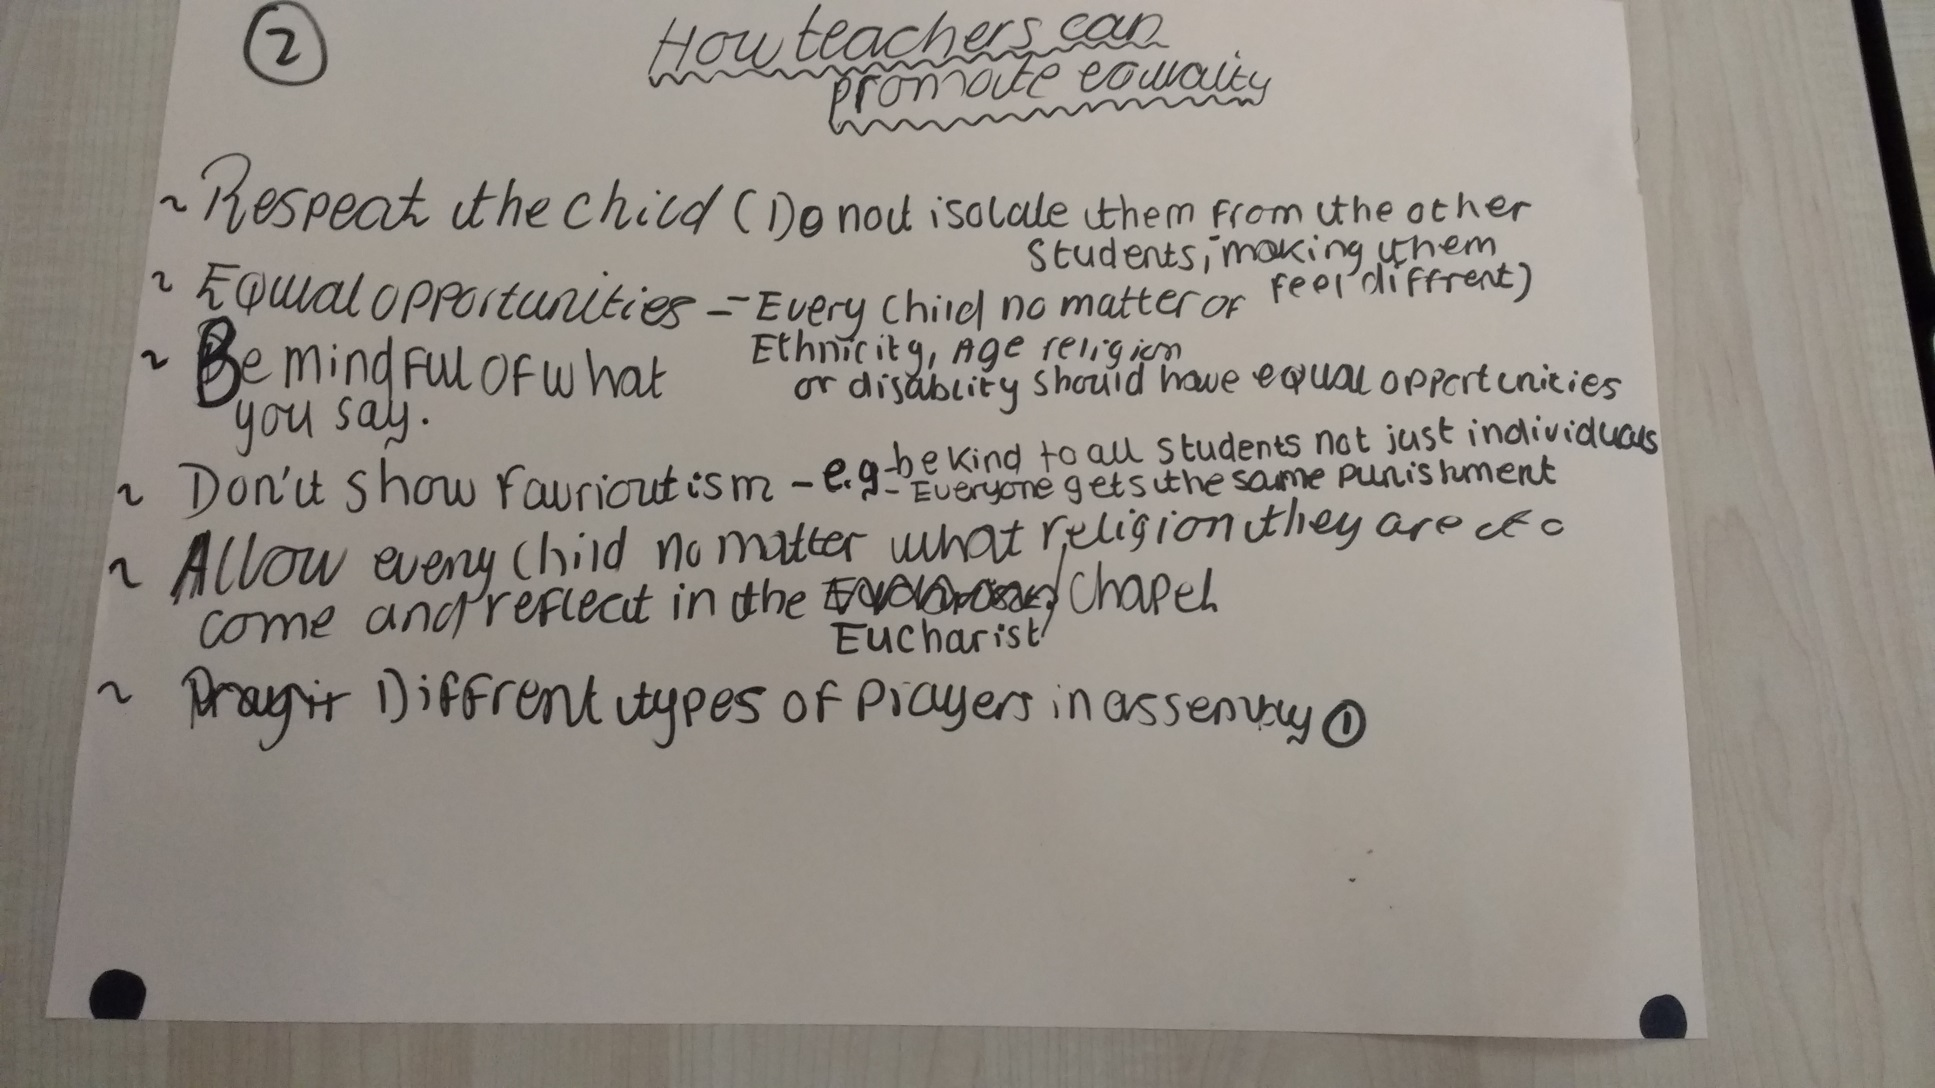 ②
How teachers can
promote equality
~ Respect the child (Do not isolate them from the other
students, making them
feel diffrent)
~ Equal opportunities - Every child no matter of
Ethnicity, Age religion
or disablity should have equal opportunities
~ Be mindful of what
you say.
~ Don't show faurioutism - e.g - be kind to all students not just individuals
- Everyone gets the same punishment
~ Allow every child no matter what religion they are to
come and reflect in the / Chapel
Eucharist
~ Diffrent types of Prayers in assembly ①